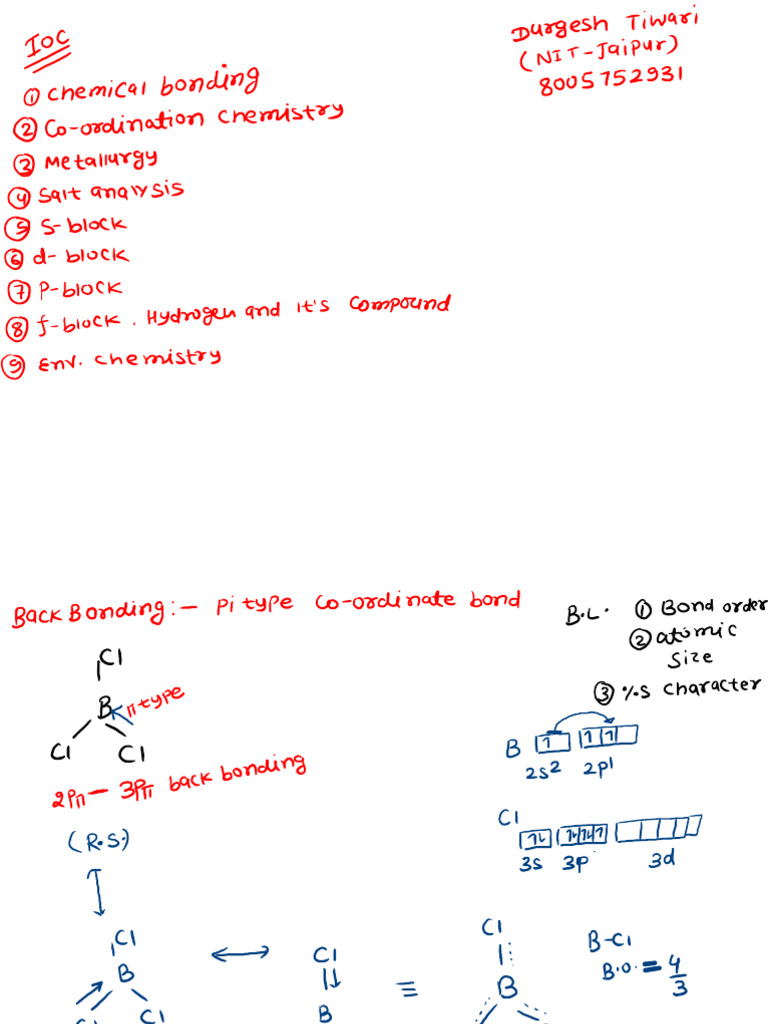 IOC
Durgesh Tiwari
(NIT-Jaipur)
8005752931
① chemical bonding
② Co-ordination chemistry
③ Metallurgy
④ Salt analysis
⑤ S-block
⑥ d-block
⑦ P-block
⑧ f-block. Hydrogen and it's compound
⑨ Env. chemistry
Back Bonding:- Pi type co-ordinate bond
B.L. ① Bond order
② atomic
Size
③ %S character
Cl
B π type
Cl Cl
2Pπ - 3Pπ back bonding
B 1 1 1
2s² 2p¹
Cl 1L 1L 1L 1
3s 3p 3d
(R.S.)
Cl
B
Cl Cl
↔
Cl
B
≡
Cl
B
B-Cl
B.O. = 4/3